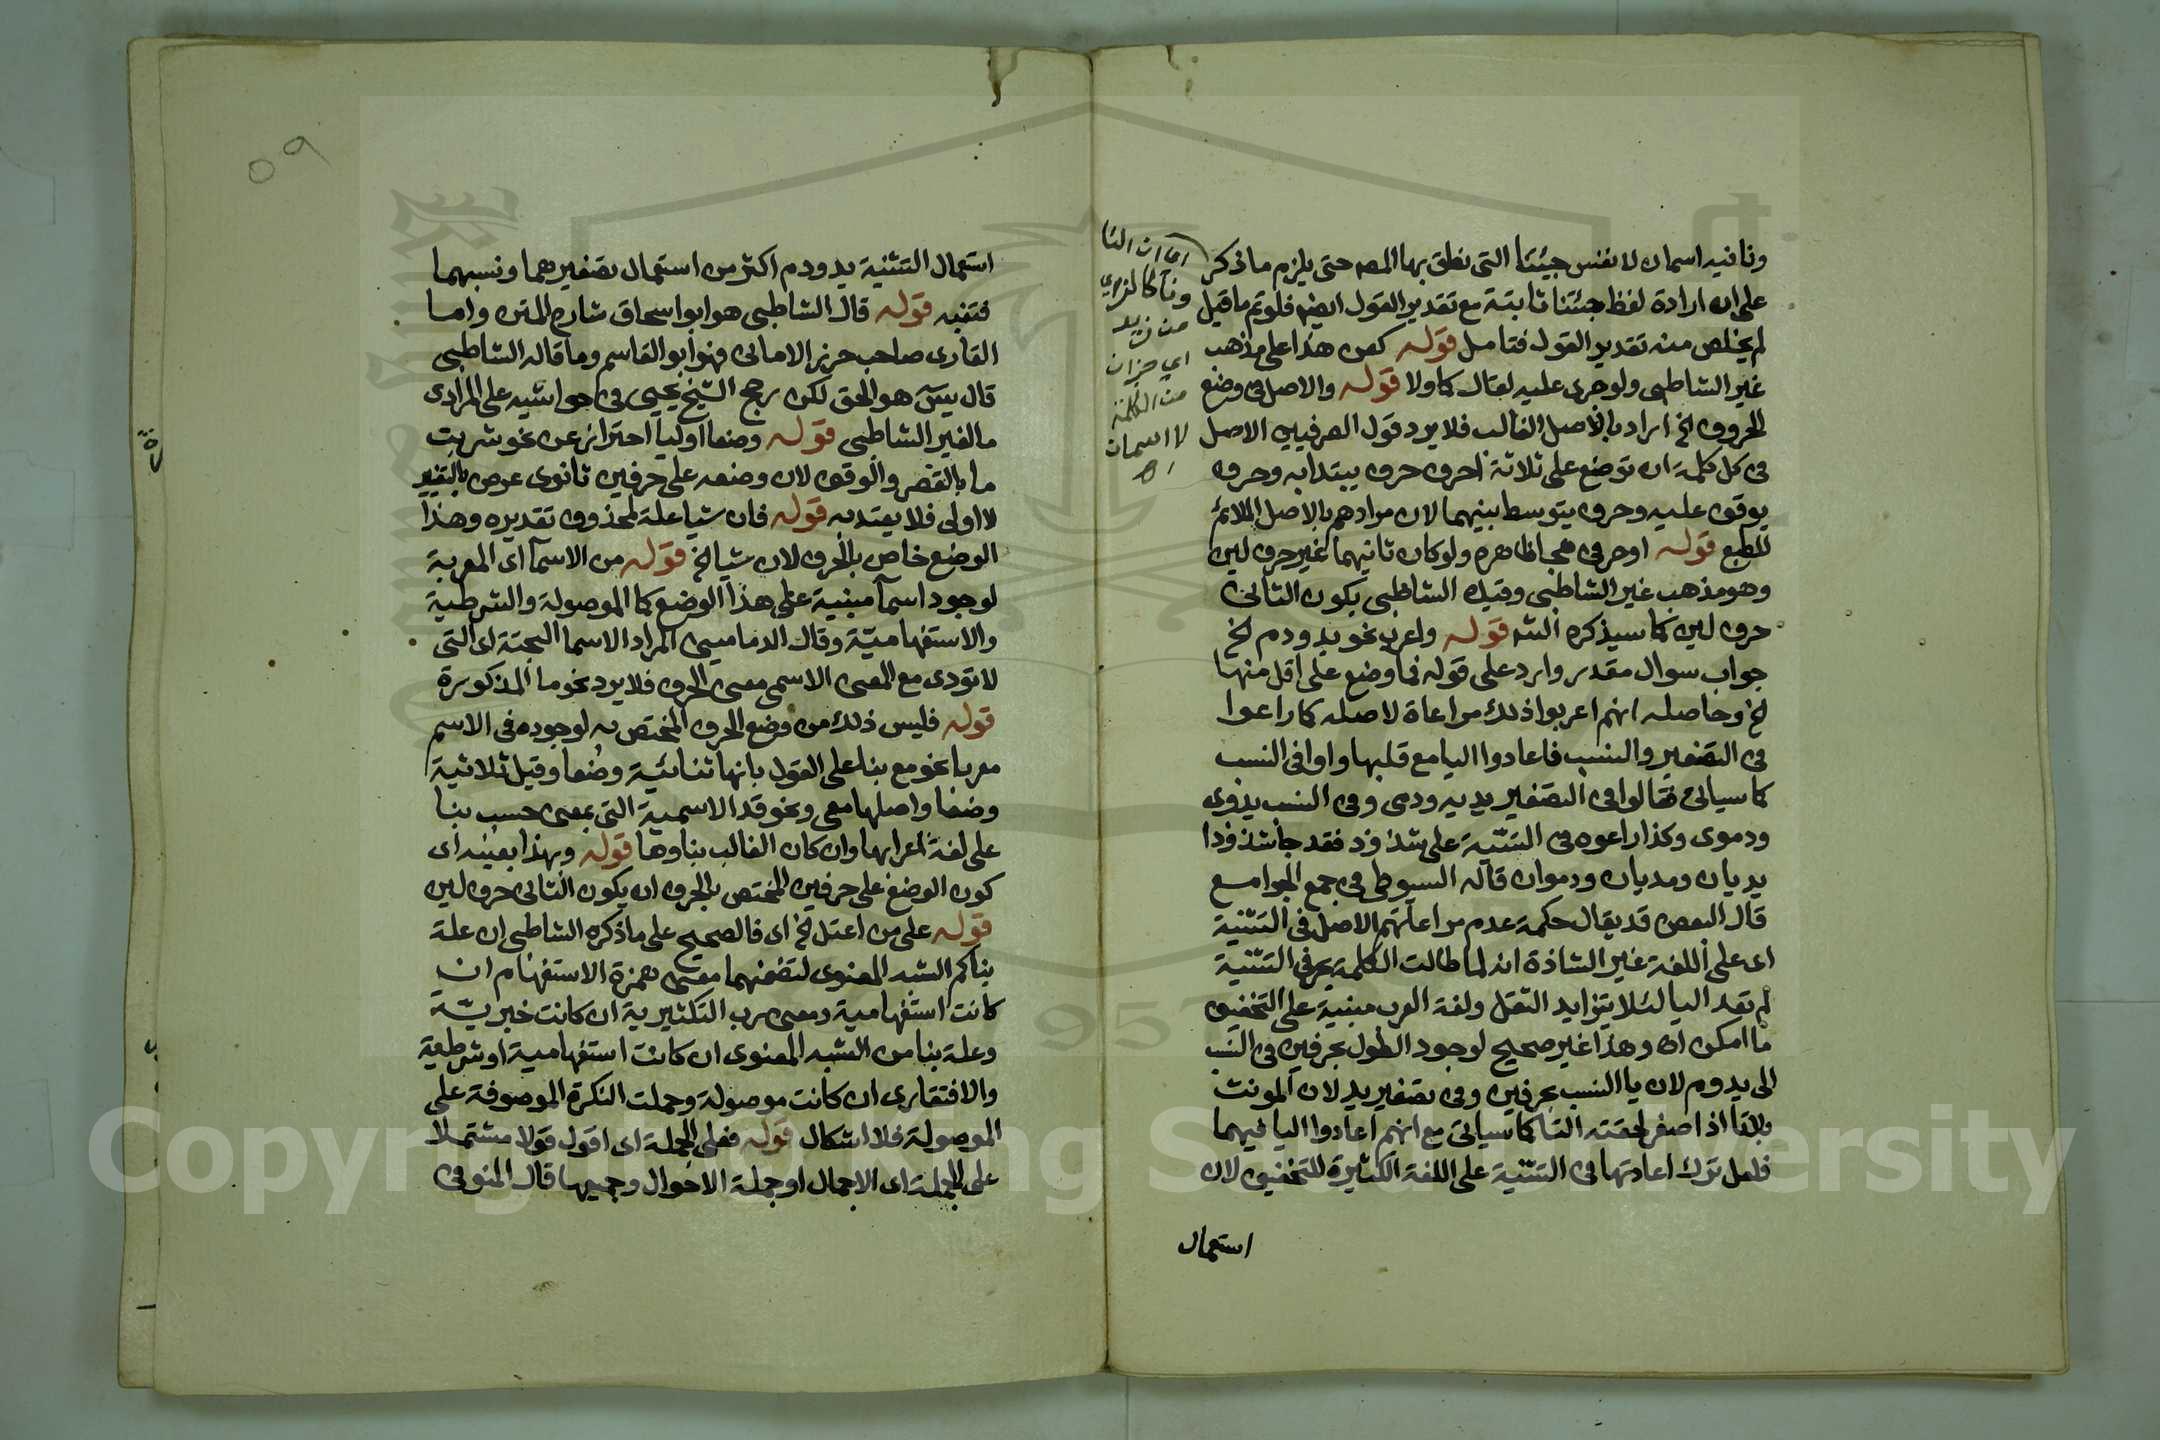 ونا فيه اسمان لا نفس جيئتنا التى نطق بها المصـ حتى يلزم ما ذكر
على ان ارادة لفظ جئتنا ثابتة مع تقدير القول ايضا فلو تم ما قيل
لم يخلص منه تقدير القول فتامل قوله كمن هذا على مذهب
غير الشاطبى ولو جرى عليه لقال كما ولا قوله والاصل فى وضع
الحروف الخ اراد بالاصل الغالب فلا يرد قول الصرفيين الاصل
فى كل كلمة ان توضع على ثلاثة احرف حرف يبتدا به وحرف
يوقف عليه وحرف يتوسط بينهما لان مرادهم بالاصل الملائم
للطبع قوله او حرفى هجا ظاهره ولو كان ثانيهما غير حرف لين
وهو مذهب غير الشاطبى وقيده الشاطبى بكون الثانى
حرف لين كما سيذكره الشـ قوله واعرب نحو يد ودم الخ
جواب سوال مقدر وارد على قوله فما وضع على اقل منها
الخ وحاصله انهم اعربوا ذلك مراعاة لاصله كما راعوا
فى التصغير والنسب فاعادوا اليا مع قلبها واوا فى النسب
كما سياتى فقالوا فى التصغير يديه ودمى وفى النسب يدوى
ودموى وكذا راعوه فى التثنية على شذوذ فقد جا شذوذا
يديان ودميان ودموان قاله السيوطى فى جمع الجوامع
قال البعض قد يقال حكمة عدم مراعاتهم الاصل فى التثنية
اى على اللغة غير الشاذة انه لما طالت الكلمة بحرفى التثنية
لم تعد اليا لئلا يتزايد الثقل ولغة العرب مبنية على التخفيف
ما امكن اه وهذا غير صحيح لوجود الطول بحرفين فى النسب
الى يد ودم لان يا النسب بحرفين وفى تصغير يد لان المونث
بلا تا اذا صغر لحقته التا كما سياتى مع انهم اعادوا اليا فيهما
فلعل ترك اعادتها فى التثنية على اللغة الكثيرة للتخفيف لان
استعمال
اى ان التا
ونا كالزاى
من زيد
اى جزان
من الكلمة
لا اسمان
اه
٥٩
استعمال التثنية يد ودم اكثر من استعمال تصغيرهما ونسبهما
فتنبه قوله قال الشاطبى هو ابو اسحاق شارح المتن واما
القارى صاحب حرز الامانى فهو ابو القاسم وما قاله الشاطبى
قال يس هو الحق لكن رجح الشيخ يحيى فى حواشيه على المرادى
ما لغير الشاطبى قوله وضعا اوليا احترازا عن نحو شربت
ما بالقصر والوقف لان وضعه على حرفين ثانوى عرض بالتغيير
لا اولى فلا يعتد به قوله فان شيا علة لمحذوف تقديره وهذا
الوضع خاص بالحرف لان شيا الخ قوله من الاسما اى المعربة
لوجود اسما مبنية على هذا الوضع كما الموصولة والشرطية
والاستفهامية وقال الدماميبى المراد الاسما البحتة اى التى
لا تودى مع المعنى الاسمى معنى الحرف فلا يرد نحو ما المذكورة
قوله فليس ذلك من وضع الحرف المختص به لوجوده فى الاسم
معربا نحو مع بنا على القول بانها ثنائية وضعا وقيل ثلاثية
وضعا واصلها معى ونحو قد الاسمية التى بمعنى حسب بنا
على لغة اعرابها وان كان الغالب بناوها قوله وبهذا بعينه اى
كون الوضع على حرفين المختص بالحرف ان يكون الثانى حرف لين
قوله على من اعتل الخ اى فالصحيح على ما ذكره الشاطبى ان علة
بنا كم الشبه المعنوى لتضمنهما معنى همزة الاستفهام ان
كانت استفهامية ومعنى رب التكثيرية ان كانت خبرية
وعلة بنا من الشبه المعنوى ان كانت استفهامية او شرطية
والافتقارى ان كانت موصولة وحملت النكرة الموصوفة على
الموصولة فلا اشكال قوله فعلى الجملة اى اقول قولا مشتملا
على الجملة اى الاجمال او جملة الاحوال وجميعها قال المنوفى
Copyright © King Saud University